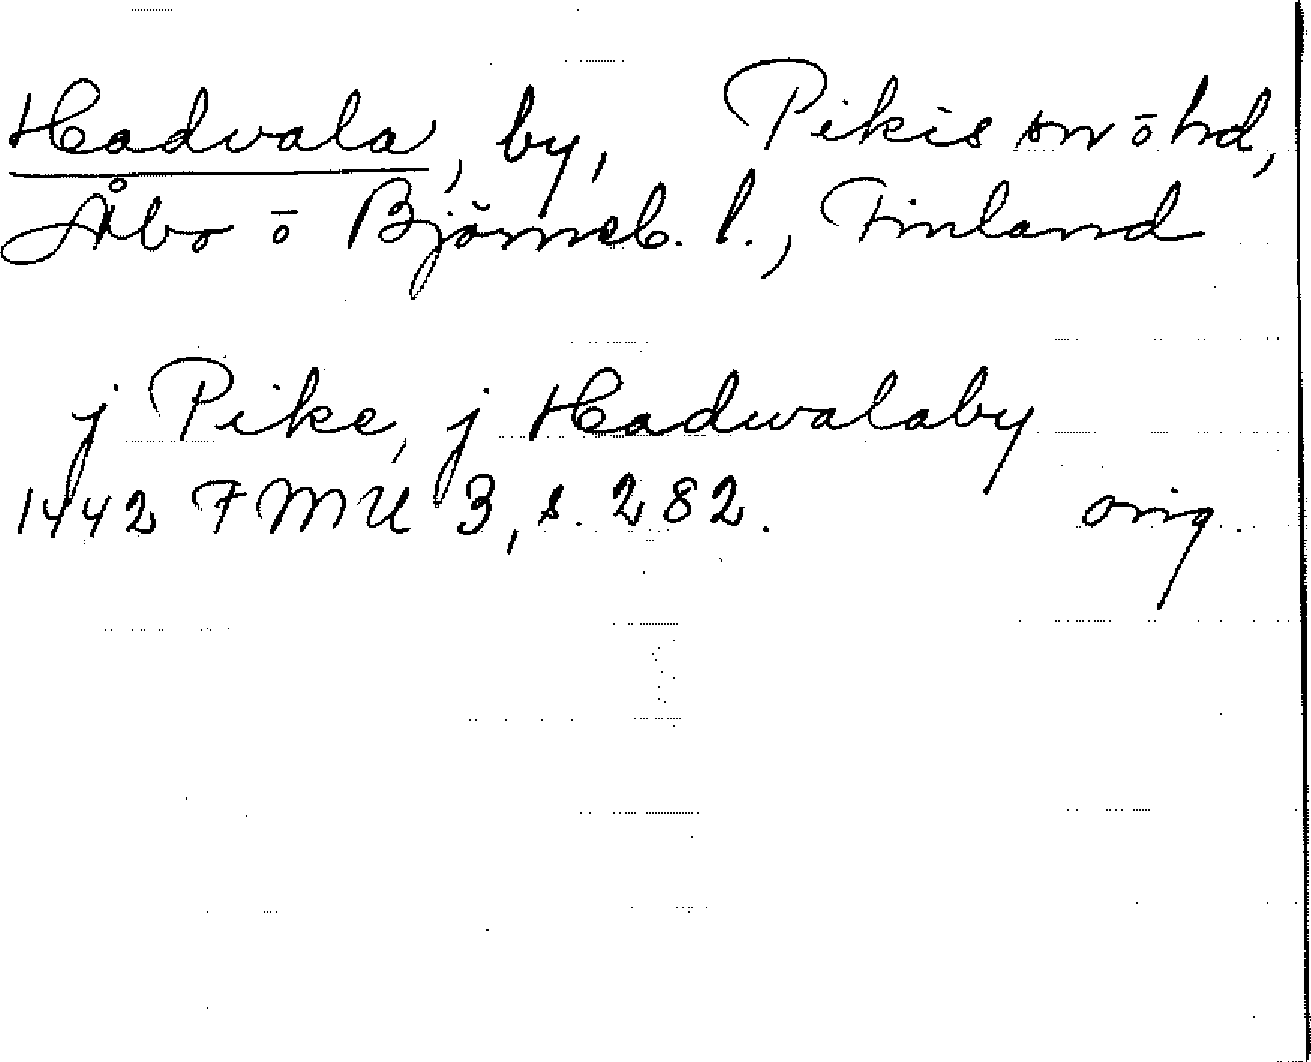 Hadvala, by, Pikis sn ō hd,
Åbo ō Björneb. l., Finland
j Pike, j Hadwalaby
1442 FMU 3, s. 282. orig.